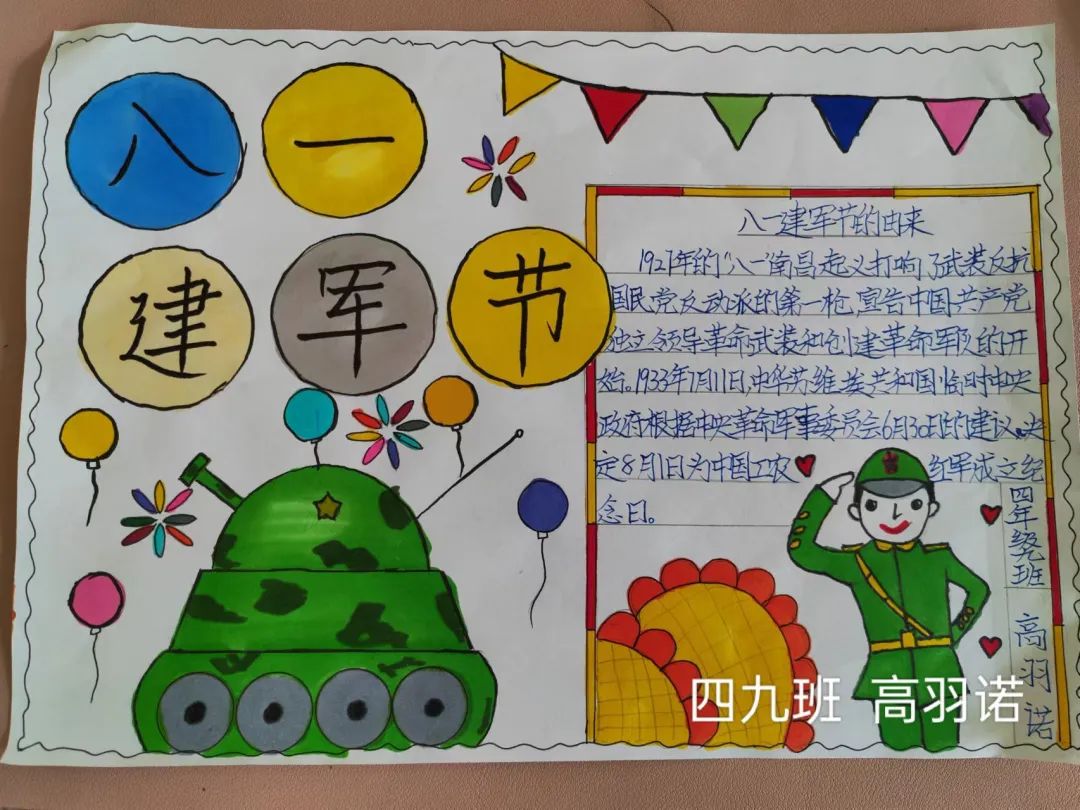 八一
建军节
八一建军节的由来
1927年的“八一”南昌起义打响了武装反抗
国民党反动派的第一枪,宣告中国共产党
独立领导革命武装和创建革命军队的开
始。1933年7月11日,中华苏维埃共和国临时中央
政府根据中央革命军事委员会6月30日的建议,决
定8月1日为中国工农红军成立纪
念日。
四年级九班
高羽诺
四九班 高羽诺